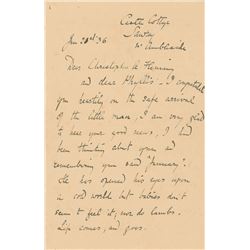 Castle Cottage
Sawrey
Nr Ambleside
Jan 30th '36
Dear Christopher & Fleming
and dear Phyllis! I congratulate
you heartily on the safe arrival
of the little man, I am very glad
to hear your good news, I had
been thinking about you and
remembering you said "January".
He has opened his eyes upon
a cold world but babies don't
seem to feel it, nor do lambs.
Life comes, and goes.